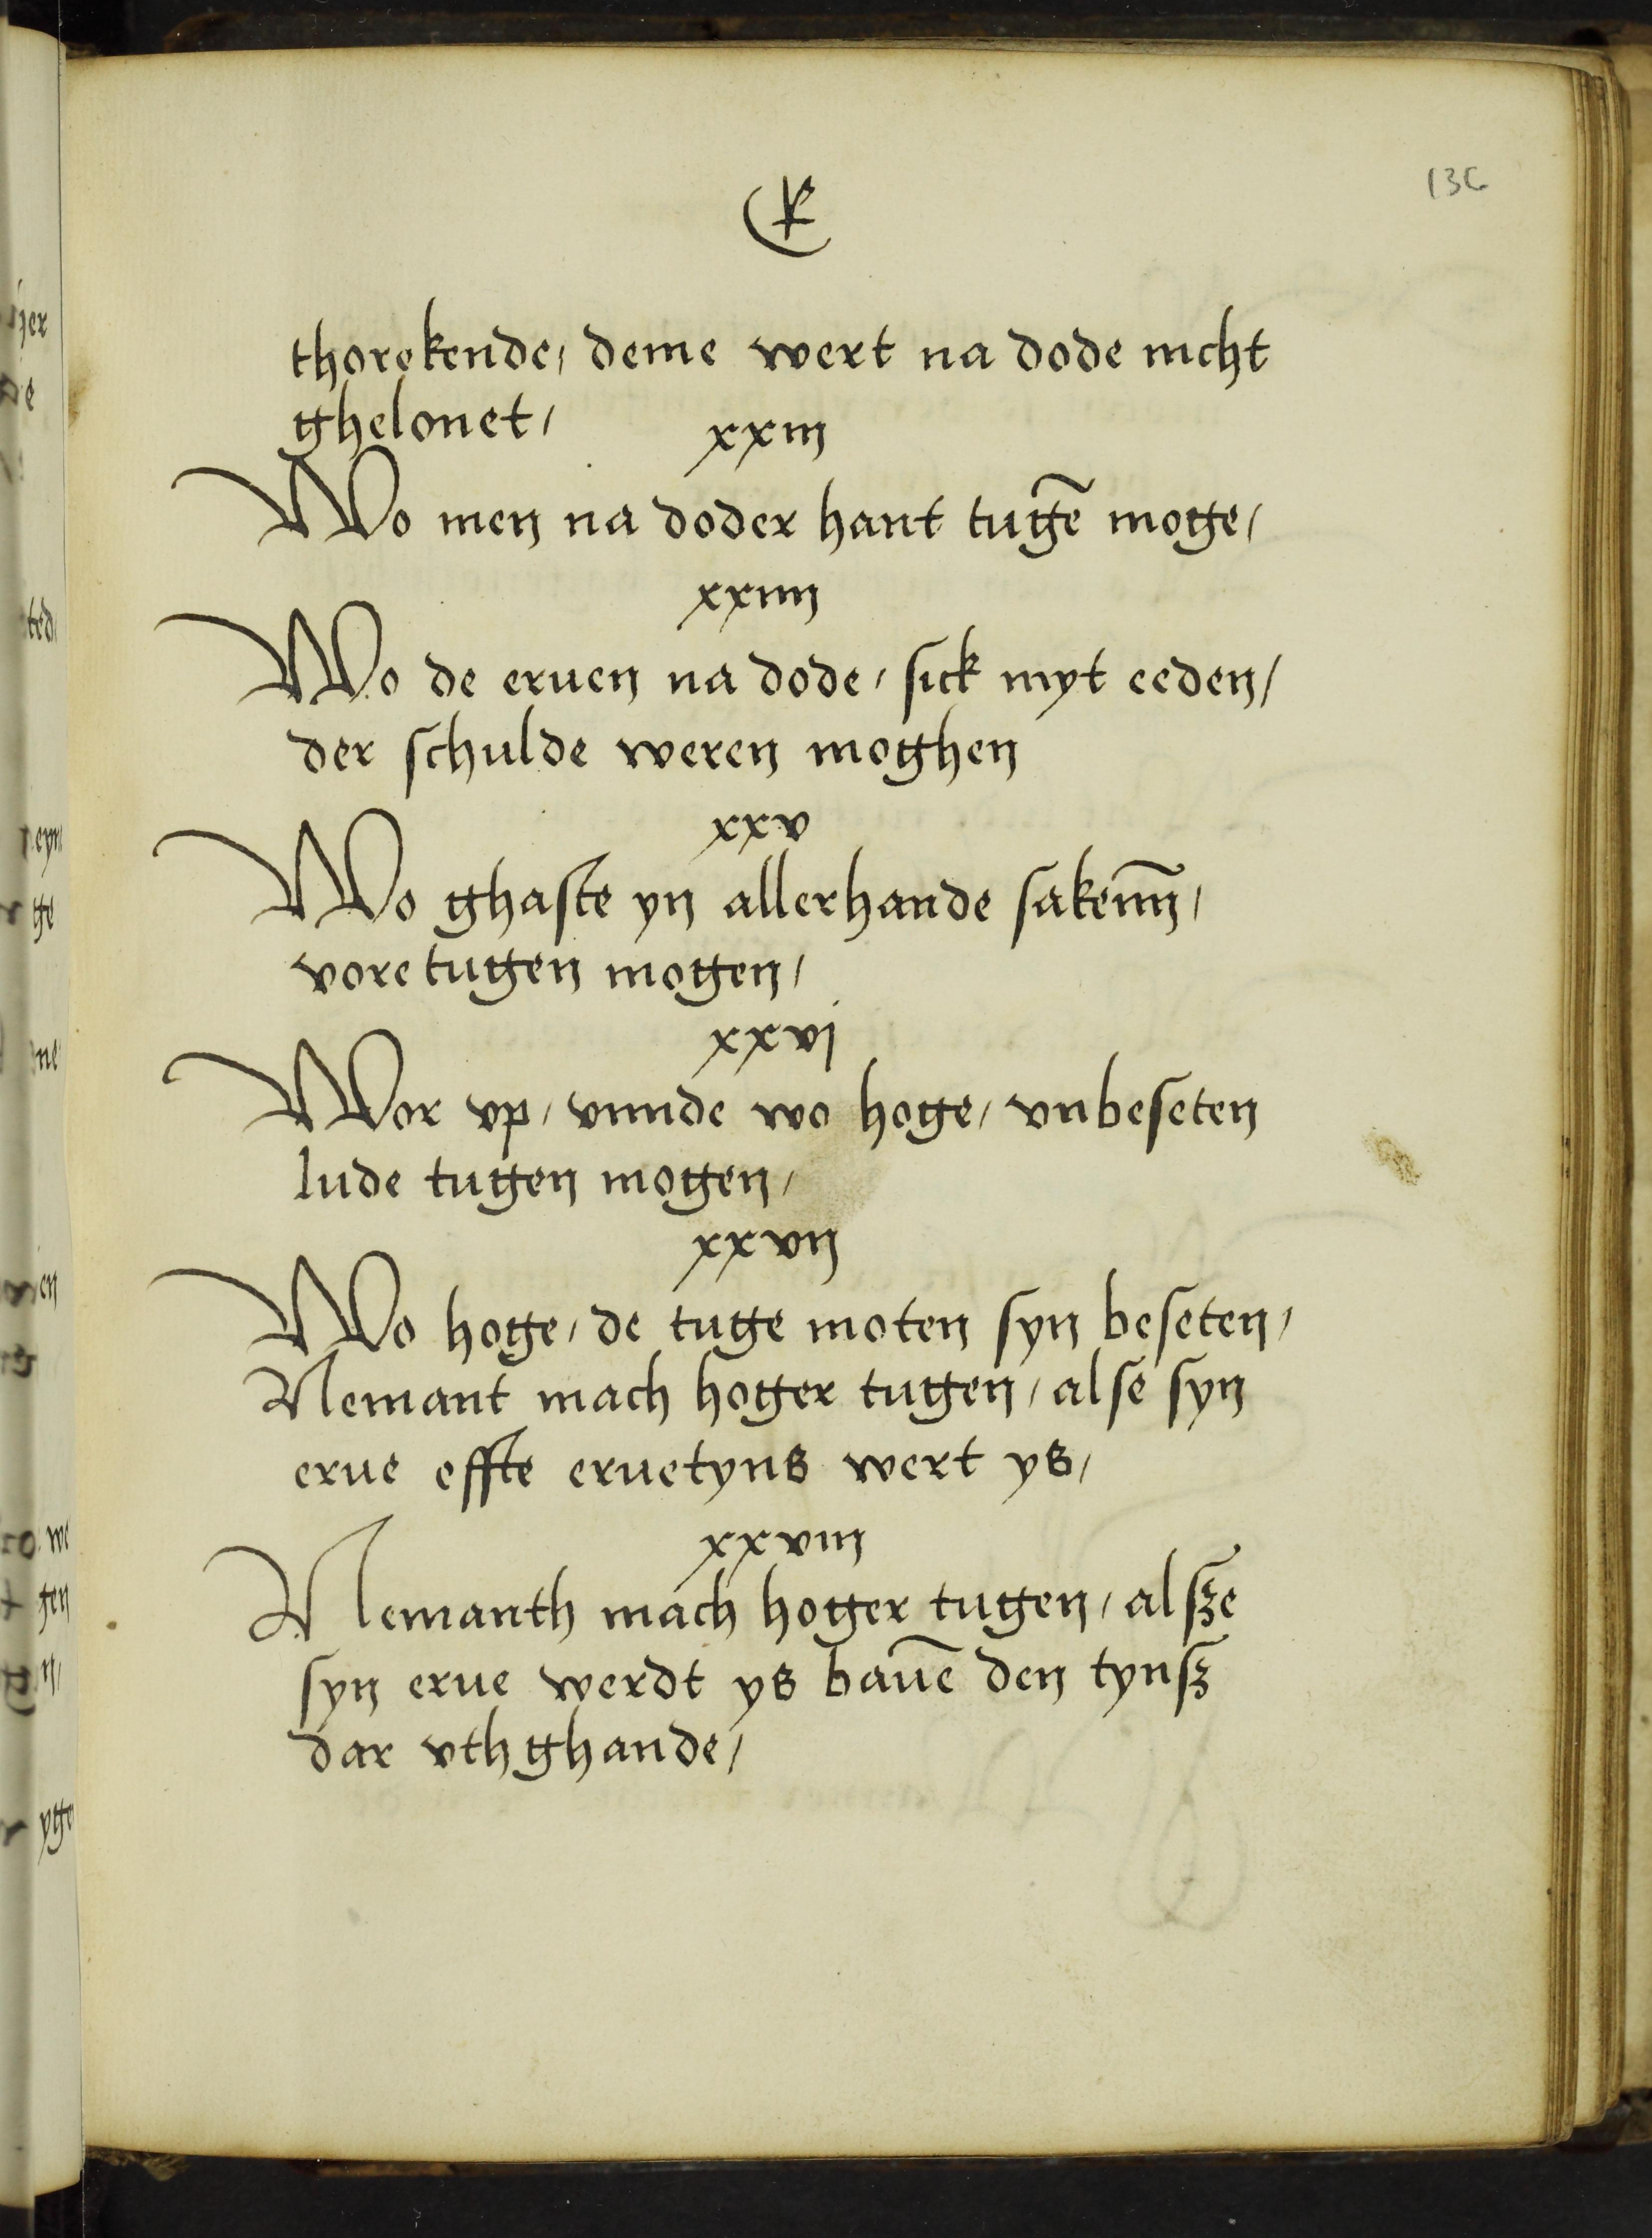 136
K
thorekende, deme wert na dode nicht
ghelonet, xxiij
Wo men na doder hant tugē moge,
xxiiij
Wo de eruen na dode, sick myt eeden,
der schulde weren moghen
xxv
Wo ghaste yn allerhande sakenn̄,
vore tugen mogen,
xxvj
Wor vp, vnnde wo hoge, vnbeseten
lude tugen mogen,
xxvij
Wo hoge, de tuge moten syn beseten,
Nemant mach hoger tugen, alse syn
erue effte eruetyns wert ys,
xxviij
Nemanth mach hoger tugen, alsze
syn erue werdt ys bauē den tynsz
dar vthghande,